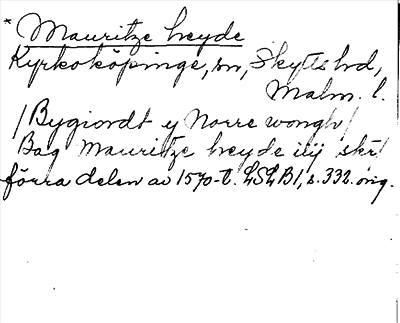 * Mauritze heyde
Kyrkoköpinge, sn, Skytts hd,
Malm. l.
/Bygiordt y Norre wongh/
Bag Mauritze heyde iiij skr/
förra delen av 1570-t. LSLB1, s. 332. orig.